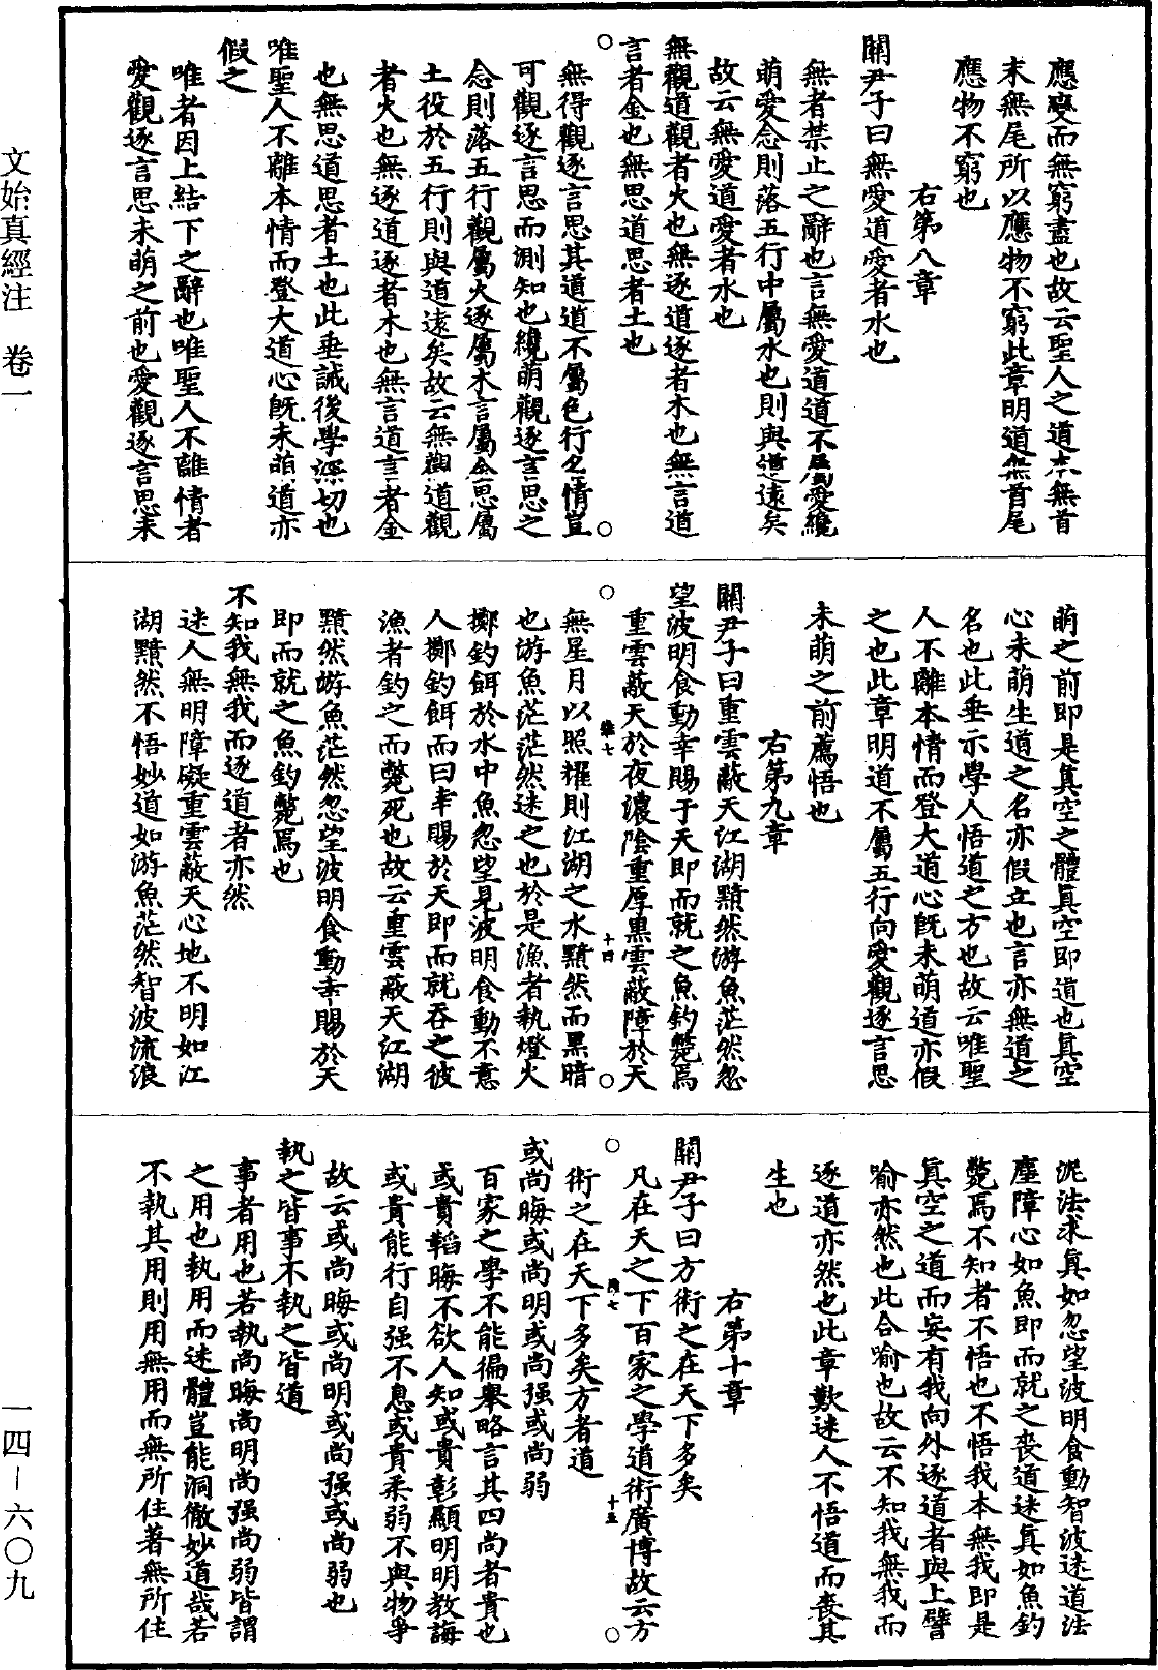 應變而無窮盡也故云聖人之道本無首
末無尾所以應物不窮此章明道無首尾
應物不窮也
右第八章
關尹子曰無愛道愛者水也
無者禁止之辭也言無愛道道不屬愛纔
萌愛念則落五行中屬水也則與道遠矣
故云無愛道愛者水也
無觀道觀者火也無逐道逐者木也無言道
言者金也無思道思者土也
無得觀逐言思其道道不屬色行名情豈
可觀逐言思而測知也纔萌觀逐言思之
念則落五行觀屬火逐屬木言屬金思屬
土役於五行則與道遠矣故云無觀道觀
者火也無逐道逐者木也無言道言者金
也無思道思者土也此垂誡後學深切也
唯聖人不離本情而登大道心旣未萌道亦
假之
唯者因上結下之辭也唯聖人不離情者
愛觀逐言思未萌之前也愛觀逐言思未
萌之前即是真空之體真空即道也真空
心未萌生道之名亦假立也言亦無道之
名也此垂示學人悟道之方也故云唯聖
人不離本情而登大道心旣未萌道亦假
之也此章明道不屬五行向愛觀逐言思
未萌之前薦悟也
右第九章
關尹子曰重雲蔽天江湖黯然游魚茫然忽
望波明食動幸賜于天即而就之魚釣斃焉
重雲蔽天於夜濃陰重厚黑雲蔽障於天
無星月以照耀則江湖之水黯然而黑暗
也游魚茫茫然迷之也於是漁者執燈火
擲釣餌於水中魚忽望見波明食動不意
人擲釣餌而曰幸賜於天即而就吞之彼
漁者釣之而斃死也故云重雲蔽天江湖
黯然游魚茫然忽望波明食動幸賜於天
即而就之魚釣斃焉也
不知我無我而逐道者亦然
迷人無明障礙重雲蔽天心地不明如江
湖黯然不悟妙道如游魚茫然智波流浪
泥法求真如忽望波明食動智波迷道法
塵障心如魚即而就之喪道迷真如魚釣
斃焉不知者不悟也不悟我本無我即是
真空之道而妄有我向外逐道者與上譬
喻亦然也此合喻也故云不知我無我而
逐道亦然也此章歎迷人不悟道而喪其
生也
右第十章
關尹子曰方術之在天下多矣
凡在天之下百家之學道術廣博故云方
術之在天下多矣方者道
或尚晦或尚明或尚强或尚弱
百家之學不能徧舉略言其四尚者貴也
或貴韜晦不欲人知或貴彰顯明明教誨
或貴能行自强不息或貴柔弱不與物爭
故云或尚晦或尚明或尚强或尚弱也
執之皆事不執之皆道
事者用也若執尚晦尚明尚强尚弱皆謂
之用也執用而迷體豈能洞徹妙道哉若
不執其用則用無用而無所住著無所住
文始真經注 卷一
一四－六〇九
十四
十五